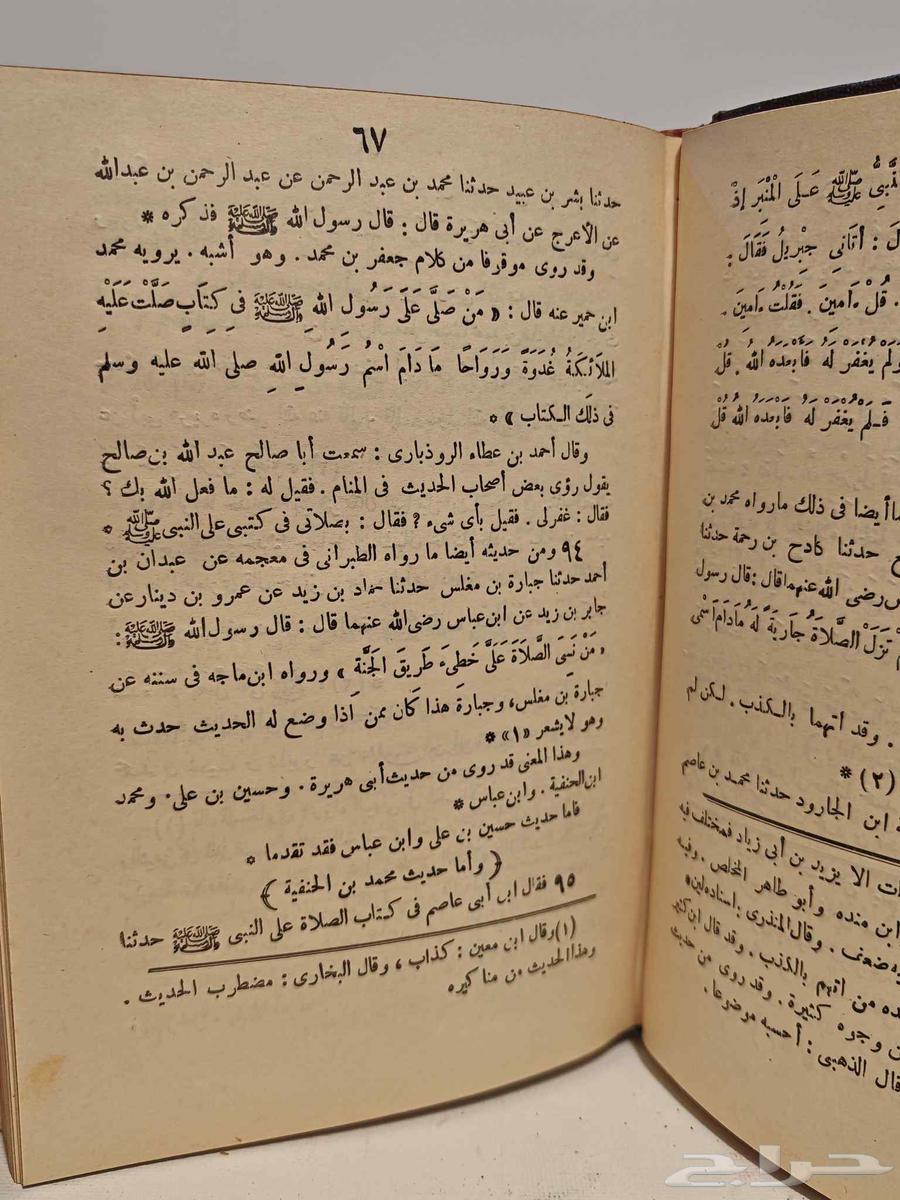 ٦٧
حدثنا بشر بن عبيد حدثنا محمد بن عبد الرحمن عن عبد الرحمن بن عبدالله
عن الأعرج عن أبى هريرة قال : قال رسول الله ﷺ فذكره *
وقد روى موقوفا من كلام جعفر بن محمد . وهو أشبه . يرويه محمد
ابن حمير عنه قال : « مَنْ صَلَّى عَلَى رَسُولِ اللهِ ﷺ فِى كِتَابٍ صَلَّتْ عَلَيْهِ
المَلَائِكَةُ غُدْوَةً وَرَوَاحًا مَادَامَ اسْمُ رَسُولِ اللهِ صلى الله عليه وسلم
فى ذلك الكتاب » *
وقال أحمد بن عطاء الروذبارى : سمعت أبا صالح عبد الله بن صالح
يقول رؤى بعض أصحاب الحديث فى المنام . فقيل له : ما فعل الله بك ؟
فقال : غفرلى . فقيل بأى شىء ? فقال : بصلاتى فى كتبى على النبى ﷺ *
٩٤ ومن حديثه أيضا ما رواه الطبرانى فى معجمه عن عبدان بن
أحمد حدثنا جبارة بن مغلس حدثنا حماد بن زيد عن عمرو بن دينار عن
جابر بن زيد عن ابن عباس رضى الله عنهما قال : قال رسول الله ﷺ :
« مَنْ نَسِىَ الصَّلَاةَ عَلَىَّ خَطِىءَ طَرِيقَ الْجَنَّة » ورواه ابن ماجه فى سننه عن
جبارة بن مغلس، وجبارة هذا كان ممن اذا وضع له الحديث حدث به
وهو لا يشعر «١» *
وهذا المعنى قد روى من حديث أبى هريرة . وحسين بن على . ومحمد
ابن الحنفية . وابن عباس *
فاما حديث حسين بن على وابن عباس فقد تقدما *
﴿ وأما حديث محمد بن الحنفية ﴾
٩٥ فقال ابن أبى عاصم فى كتاب الصلاة على النبى ﷺ حدثنا
(١) وقال ابن معين : كذاب ، وقال البخارى : مضطرب الحديث .
وهذا الحديث من مناكيره
ﷺ عَلَى الْمِنْبَر إِذْ
: أَتَانِى جِبْرِيلُ فَقَالَ :
. قُلْ ءَامِينَ . فَقُلْتُ ءَامِينَ .
يُغْفَرْ لَهُ فَأَبْعَدَهُ اللهُ . قُلْ
فَلَمْ يُغْفَرْ لَهُ فَأَبْعَدَهُ اللهُ قُلْ
أيضا فى ذلك مارواه محمد بن
حدثنا كادح بن رحمة حدثنا
رضى الله عنهما قال : قال رسول
تَزَلْ الصَّلَاةُ جَارِيَةً لَهُ مَادَامَ اسْمِى
. وقد أتهما بالكذب . لكن لم
(٢) *
ابن الجارود حدثنا محمد بن عاصم
الا يزيد بن أبى زياد فمختلف فيه
ابن منده وأبو طاهر المخلص . وفيه
ضعف . وقال المنذرى : اسناده لين
من اتهم بالكذب . وقد قال ابن كثير
وجوه كثيرة . وقد روى من حديث
قال الذهبى : أحسبه موضوعا .
حراج